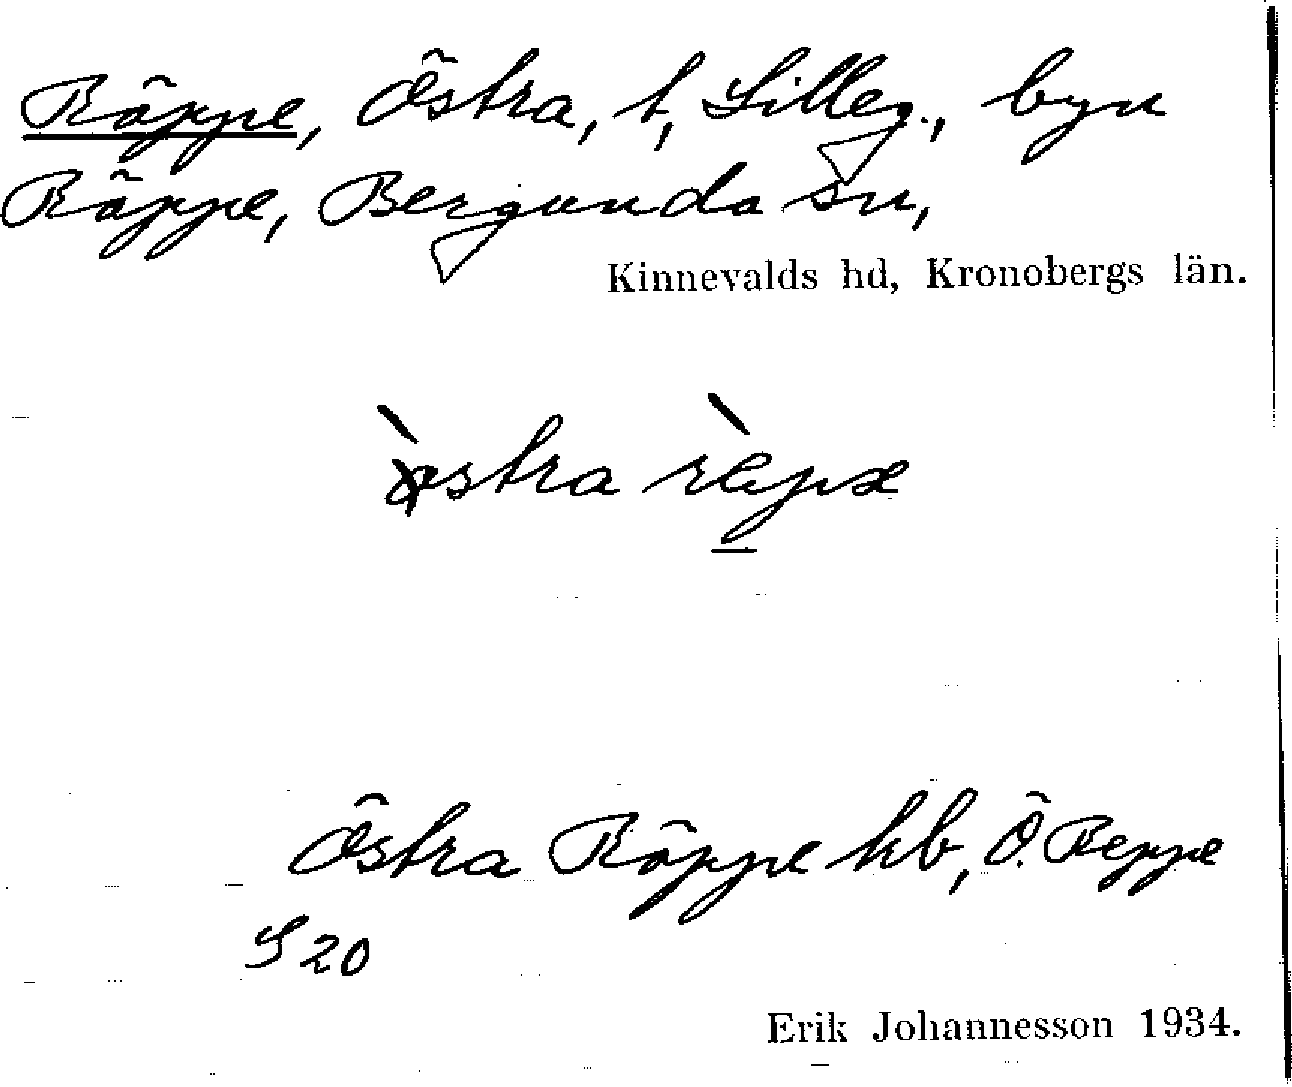 Räppe, Östra, t, Lilleg., byn
Räppe, Bergunda sn,
Kinnevalds hd, Kronobergs län.
Östra Räppe kb, Ö. Reppe
S 20
Erik Johannesson 1934.